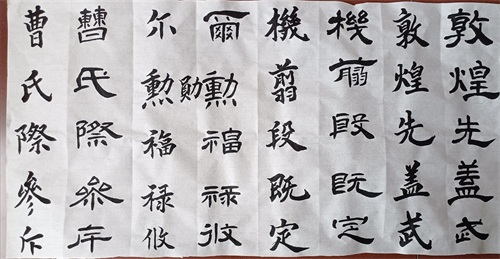 敦煌先盖武
敦煌先盖武
機翦段既定
機翦段既定
爾勳福禄攸
勛
尔勳福禄攸
曹氏際叅斥
曹氏際參斥